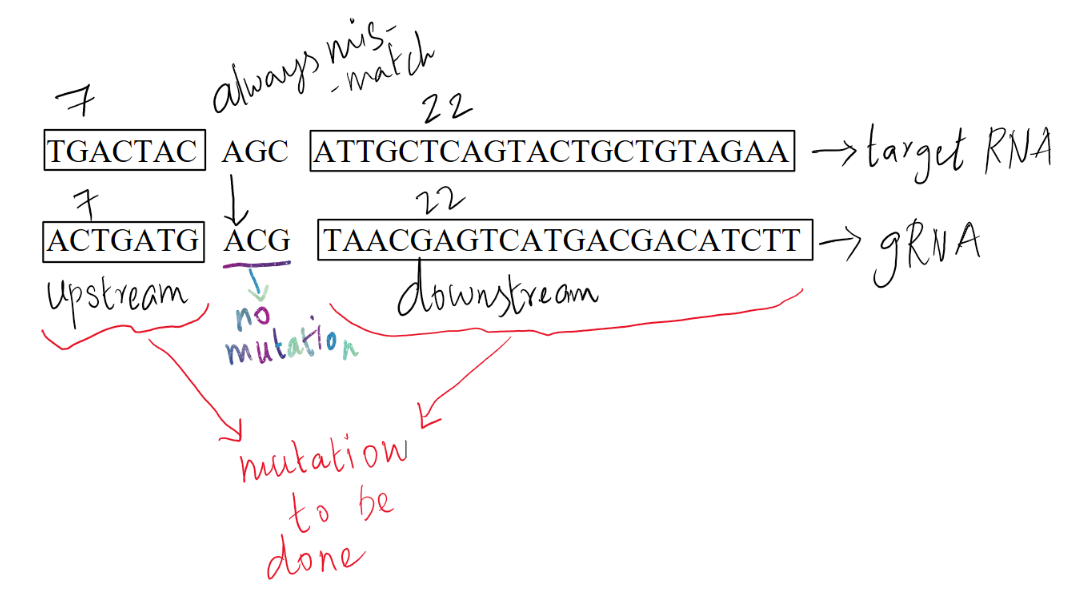 always mis-
-match
7
22
TGACTAC AGC ATTGCTCAGTACTGCTGTAGAA → target RNA
7
22
ACTGATG ACG TAACGAGTCATGACGACATCTT → gRNA
upstream
downstream
no
mutation
mutation
to be
done